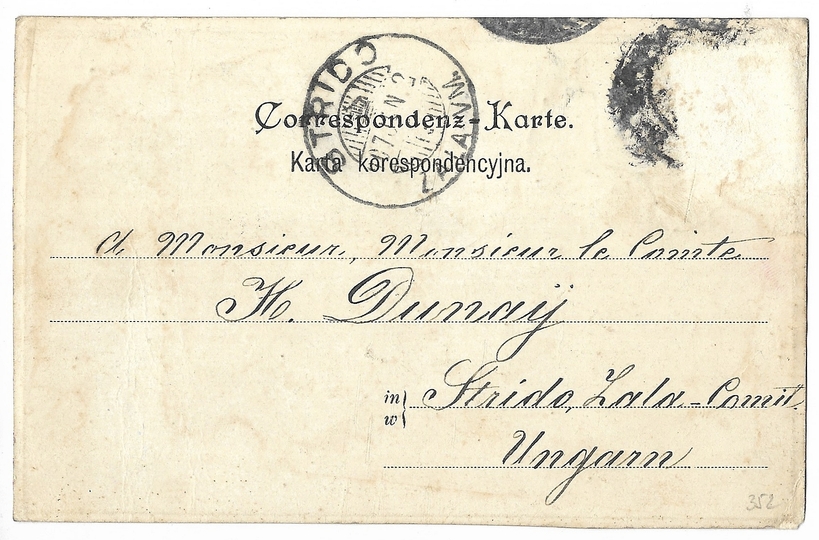 STRIDÓ
ZALA VM.
Correspondenz-Karte.
Karta korespondencyjna.
A Monsieur, Monsieur le Comte
H. Dunaÿ
in
w
Strido, Zala-Comit.
Ungarn
352